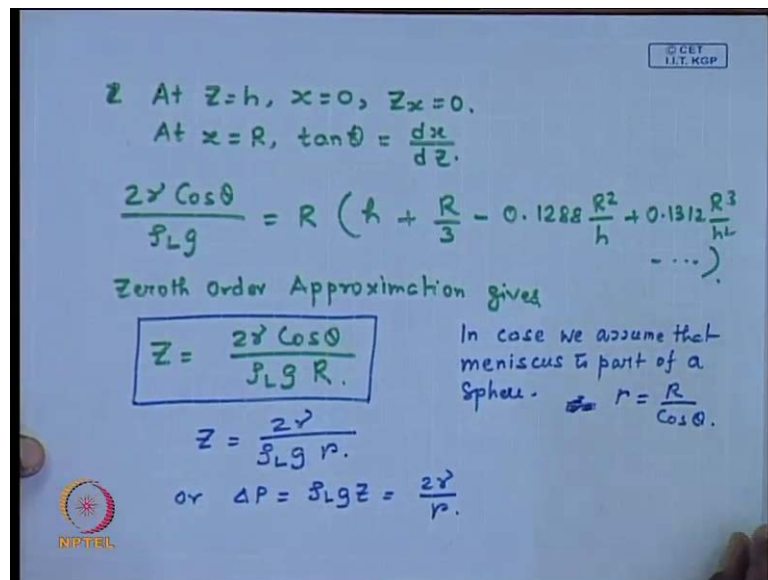 © CET
I.I.T. KGP
2 At Z=h, x=0, Zx=0.
At x=R, tanθ = dx/dz.
2γ Cosθ / ρLg = R (h + R/3 - 0.1288 R²/h + 0.1312 R³/h²
- ....).
Zeroth Order Approximation gives
Z = 2γ Cosθ / ρLg R.
In case we assume that
meniscus is part of a
Sphere. r = R/Cosθ.
Z = 2γ / ρLg r.
or ΔP = ρLgZ = 2γ/r.
NPTEL